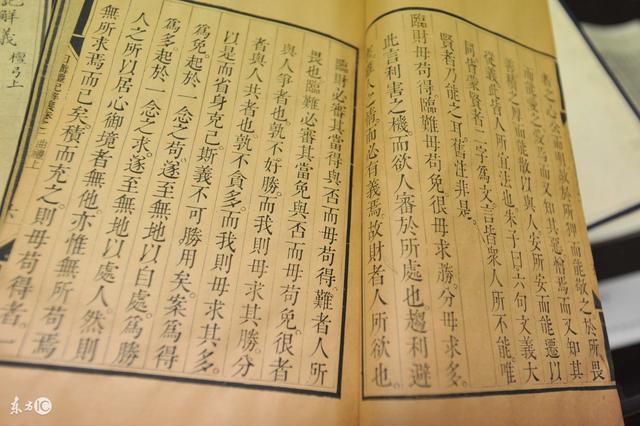 者之心又當用敬於所狎而能敬之於所畏
而能愛之愛焉而又知其惡憎焉而又知其
善積而能散以與人安所安而能遷以
從義此皆人所宜法也朱子曰六句文義大
同皆蒙賢者二字為文言皆眾人所不能唯
賢者乃能之耳舊注非是。
臨財毋苟得。臨難毋苟免。很毋求勝。分毋求多。
此言利害之機。而欲人審於所處也。趨利避
雖人之情。而必有義焉。故財者人所欲也。
臨財必審其當得與否而毋苟得。難者人所
畏也。臨難必審其當免與否。而毋苟免。很者
與人爭者也。孰不好勝。而我則毋求其勝。分
者與人共者也。孰不貪多。而我則毋求其多。
以是而省身克己。斯義不可勝用矣。案為得
為免。起於一念之苟。遂至無地以自處。為勝
為多。起於一念之求。遂至無地以處人。然則
人之所以居心御境者無他。亦惟無所苟焉
無所求焉而已矣。積而充之。則毋苟得者。一
曲禮上
記解義 檀弓上
东方IC